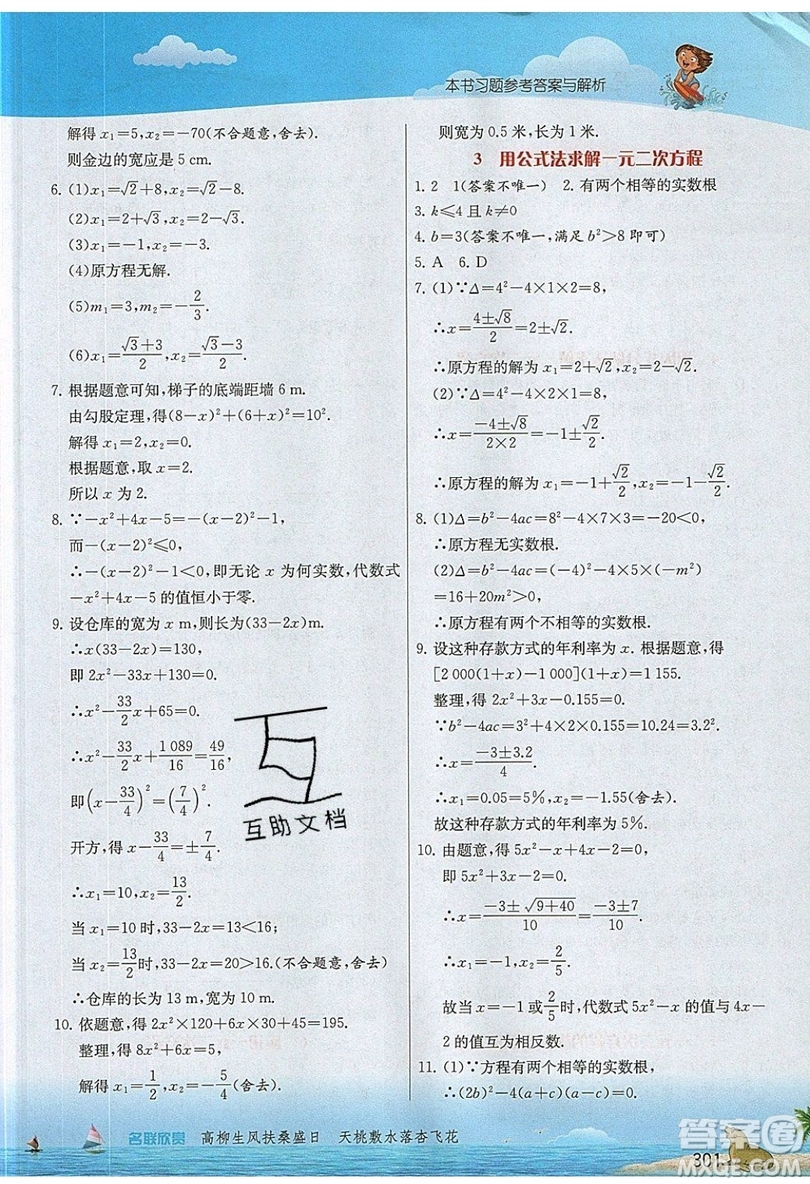 本书习题参考答案与解析
解得 x₁=5,x₂=-70(不合题意,舍去).
则金边的宽应是 5 cm.
6. (1)x₁=√2+8,x₂=√2-8.
(2)x₁=2+√3,x₂=2-√3.
(3)x₁=-1,x₂=-3.
(4)原方程无解.
(5)m₁=3,m₂=-2/3.
(6)x₁=(√3+3)/2,x₂=(√3-3)/2.
7. 根据题意可知,梯子的底端距墙 6 m.
由勾股定理,得(8-x)²+(6+x)²=10².
解得 x₁=2,x₂=0.
根据题意,取 x=2.
所以 x 为 2.
8. ∵-x²+4x-5=-(x-2)²-1,
而-(x-2)²≤0,
∴-(x-2)²-1<0,即无论 x 为何实数,代数式
-x²+4x-5 的值恒小于零.
9. 设仓库的宽为 x m,则长为(33-2x)m.
∴x(33-2x)=130,
即 2x²-33x+130=0.
∴x²-33/2x+65=0.
∴x²-33/2x+1 089/16=49/16,
即(x-33/4)²=(7/4)².
开方,得 x-33/4=±7/4.
∴x₁=10,x₂=13/2.
当 x₁=10 时,33-2x=13<16;
当 x₂=13/2时,33-2x=20>16.(不合题意,舍去)
∴仓库的长为 13 m,宽为 10 m.
10. 依题意,得 2x²×120+6x×30+45=195.
整理,得 8x²+6x=5,
解得 x₁=1/2,x₂=-5/4(不合题意,舍去)
则宽为 0.5 米,长为 1 米.
3 用公式法求解一元二次方程
1. 2 1(答案不唯一) 2. 有两个相等的实数根
3. k≤4 且 k≠0
4. b=3(答案不唯一,满足 b²>8 即可)
5. A 6. D
7. (1)∵Δ=4²-4×1×2=8,
∴x=(4±√8)/2=2±√2.
∴原方程的解为 x₁=2+√2,x₂=2-√2.
(2)∵Δ=4²-4×2×1=8,
∴x=(-4±√8)/(2×2)=-1±√2/2.
∴原方程的解为 x₁=-1+√2/2,x₂=-1-√2/2.
8. (1)Δ=b²-4ac=8²-4×7×3=-20<0,
∴原方程无实数根.
(2)Δ=b²-4ac=4²-4×5×(-m²)
=16+20m²>0,
∴原方程有两个不相等的实数根.
9. 设这种存款方式的年利率为 x. 根据题意,得
[2 000(1+x)-1 000](1+x)=1 155.
整理,得 2x²+3x-0.155=0.
∵b²-4ac=3²+4×2×0.155=10.24=3.2².
∴x=(-3±3.2)/4.
∴x₁=0.05=5%,x₂=-1.55(舍去).
故这种存款方式的年利率为 5%.
10. 由题意,得 5x²-x+4x-2=0,
即 5x²+3x-2=0.
∴x=(-3±√(9+40))/10=(-3±7)/10.
∴x₁=-1,x₂=2/5.
故当 x=-1 或2/5时,代数式 5x²-x 的值与 4x-
2 的值互为相反数.
11. (1)∵方程有两个相等的实数根,
∴(2b)²-4(a+c)(a-c)=0,
互助文档
名联欣赏 高柳生风扶桑盛日 天桃数水落杏飞花
301
答案圈
MXQE.COM